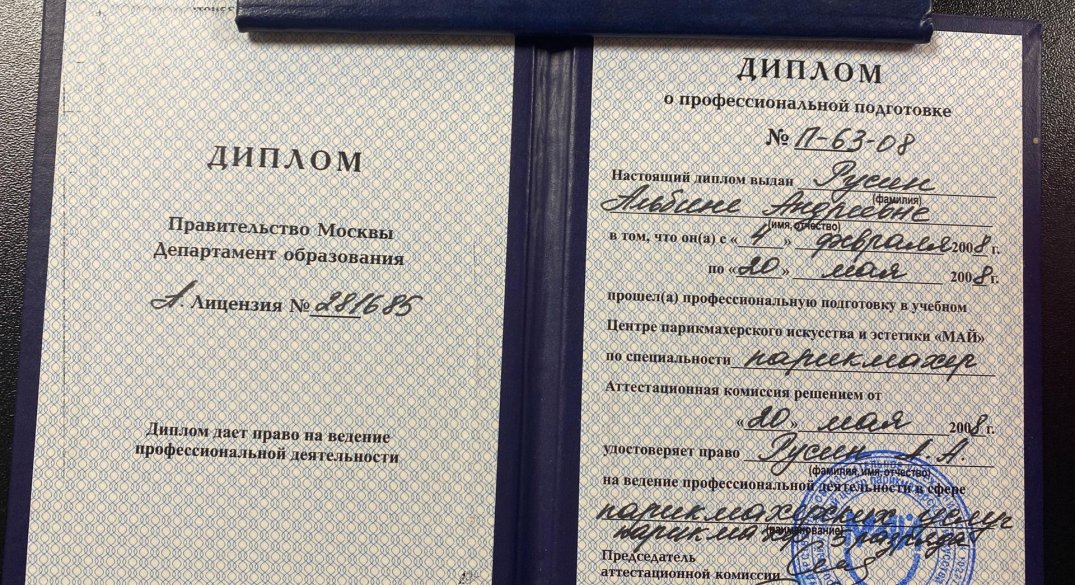 ДИПЛОМ
Правительство Москвы
Департамент образования
А. Лицензия № 281685
Диплом дает право на ведение
профессиональной деятельности
ДИПЛОМ
о профессиональной подготовке
№ П-63-08
Настоящий диплом выдан Русин
(фамилия)
Альбине Андреевне
(имя, отчество)
в том, что он(а) с « 4 » февраля 2008 г.
по «20» мая 2008 г.
прошел(а) профессиональную подготовку в учебном
Центре парикмахерского искусства и эстетики «МАЙ»
по специальности парикмахер
Аттестационная комиссия решением от
«20» мая 2008 г.
удостоверяет право Русин А. А.
(фамилия, имя, отчество)
на ведение профессиональной деятельности в сфере
парикмахерских услуг
(наименование)
парикмахер 3 разряда
Председатель
аттестационной комиссии